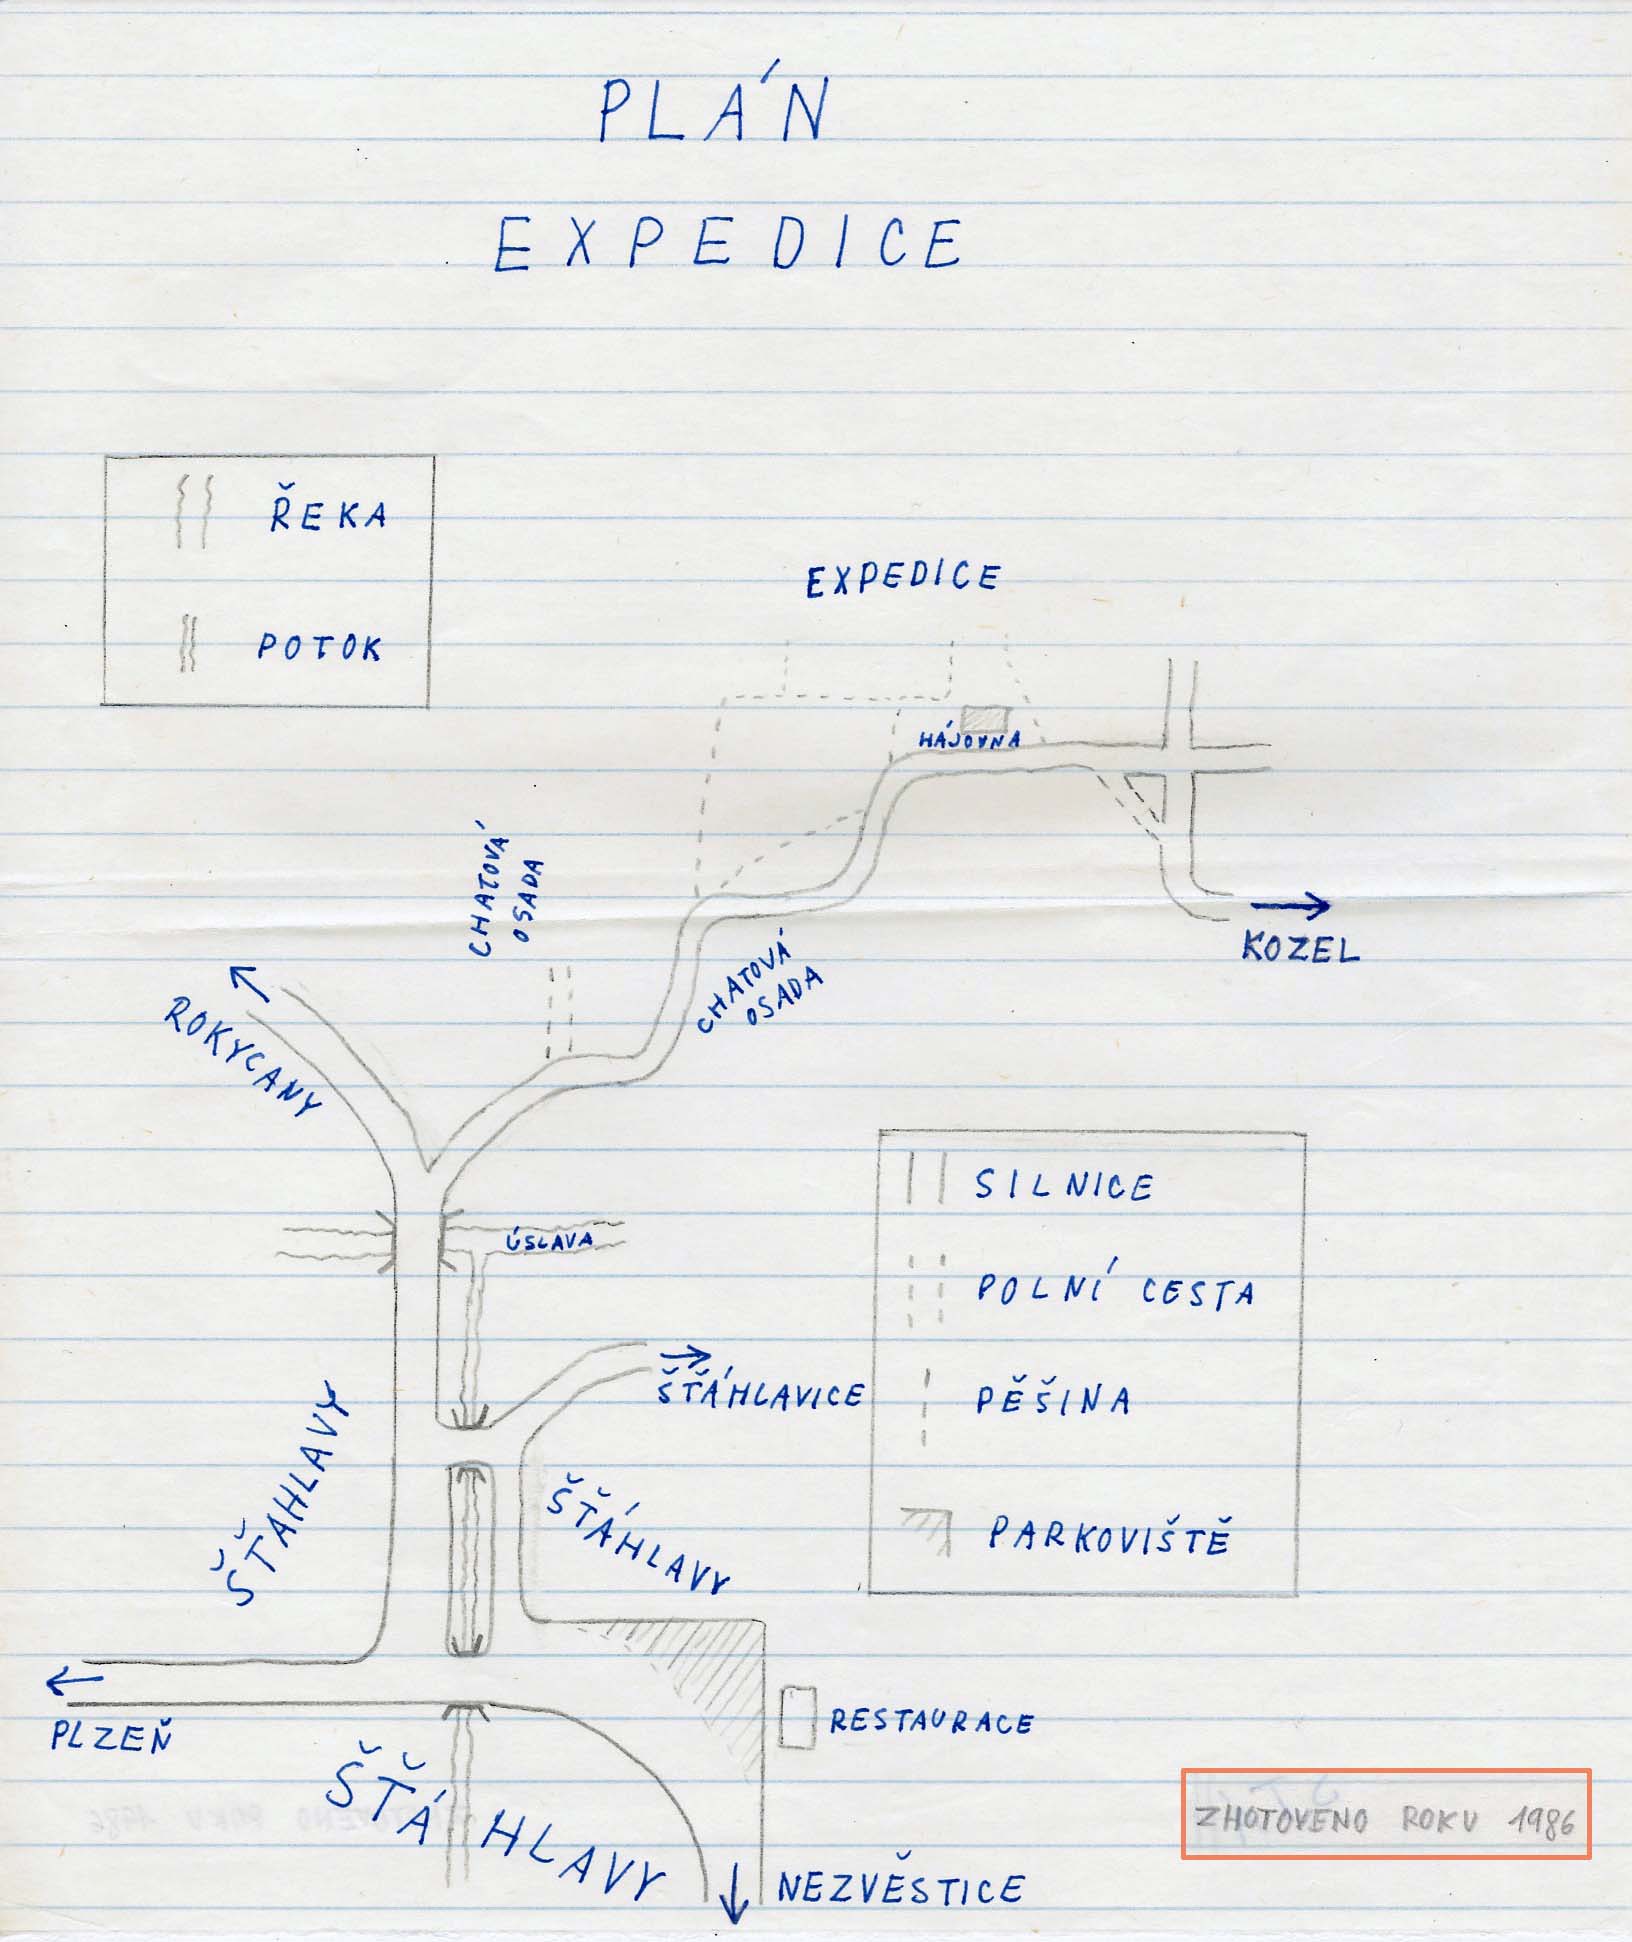 PLÁN
EXPEDICE
ŘEKA
POTOK
EXPEDICE
HÁJOVNA
CHATOVÁ
OSADA
KOZEL
CHATOVÁ
OSADA
ROKYCANY
SILNICE
ÚSLAVA
POLNÍ CESTA
ŠŤÁHLAVICE
PĚŠINA
ŠŤAHLAVY
ŠŤÁHLAVY
PARKOVIŠTĚ
RESTAURACE
PLZEŇ
ŠŤÁHLAVY
ZHOTOVENO ROKU 1986
NEZVĚSTICE